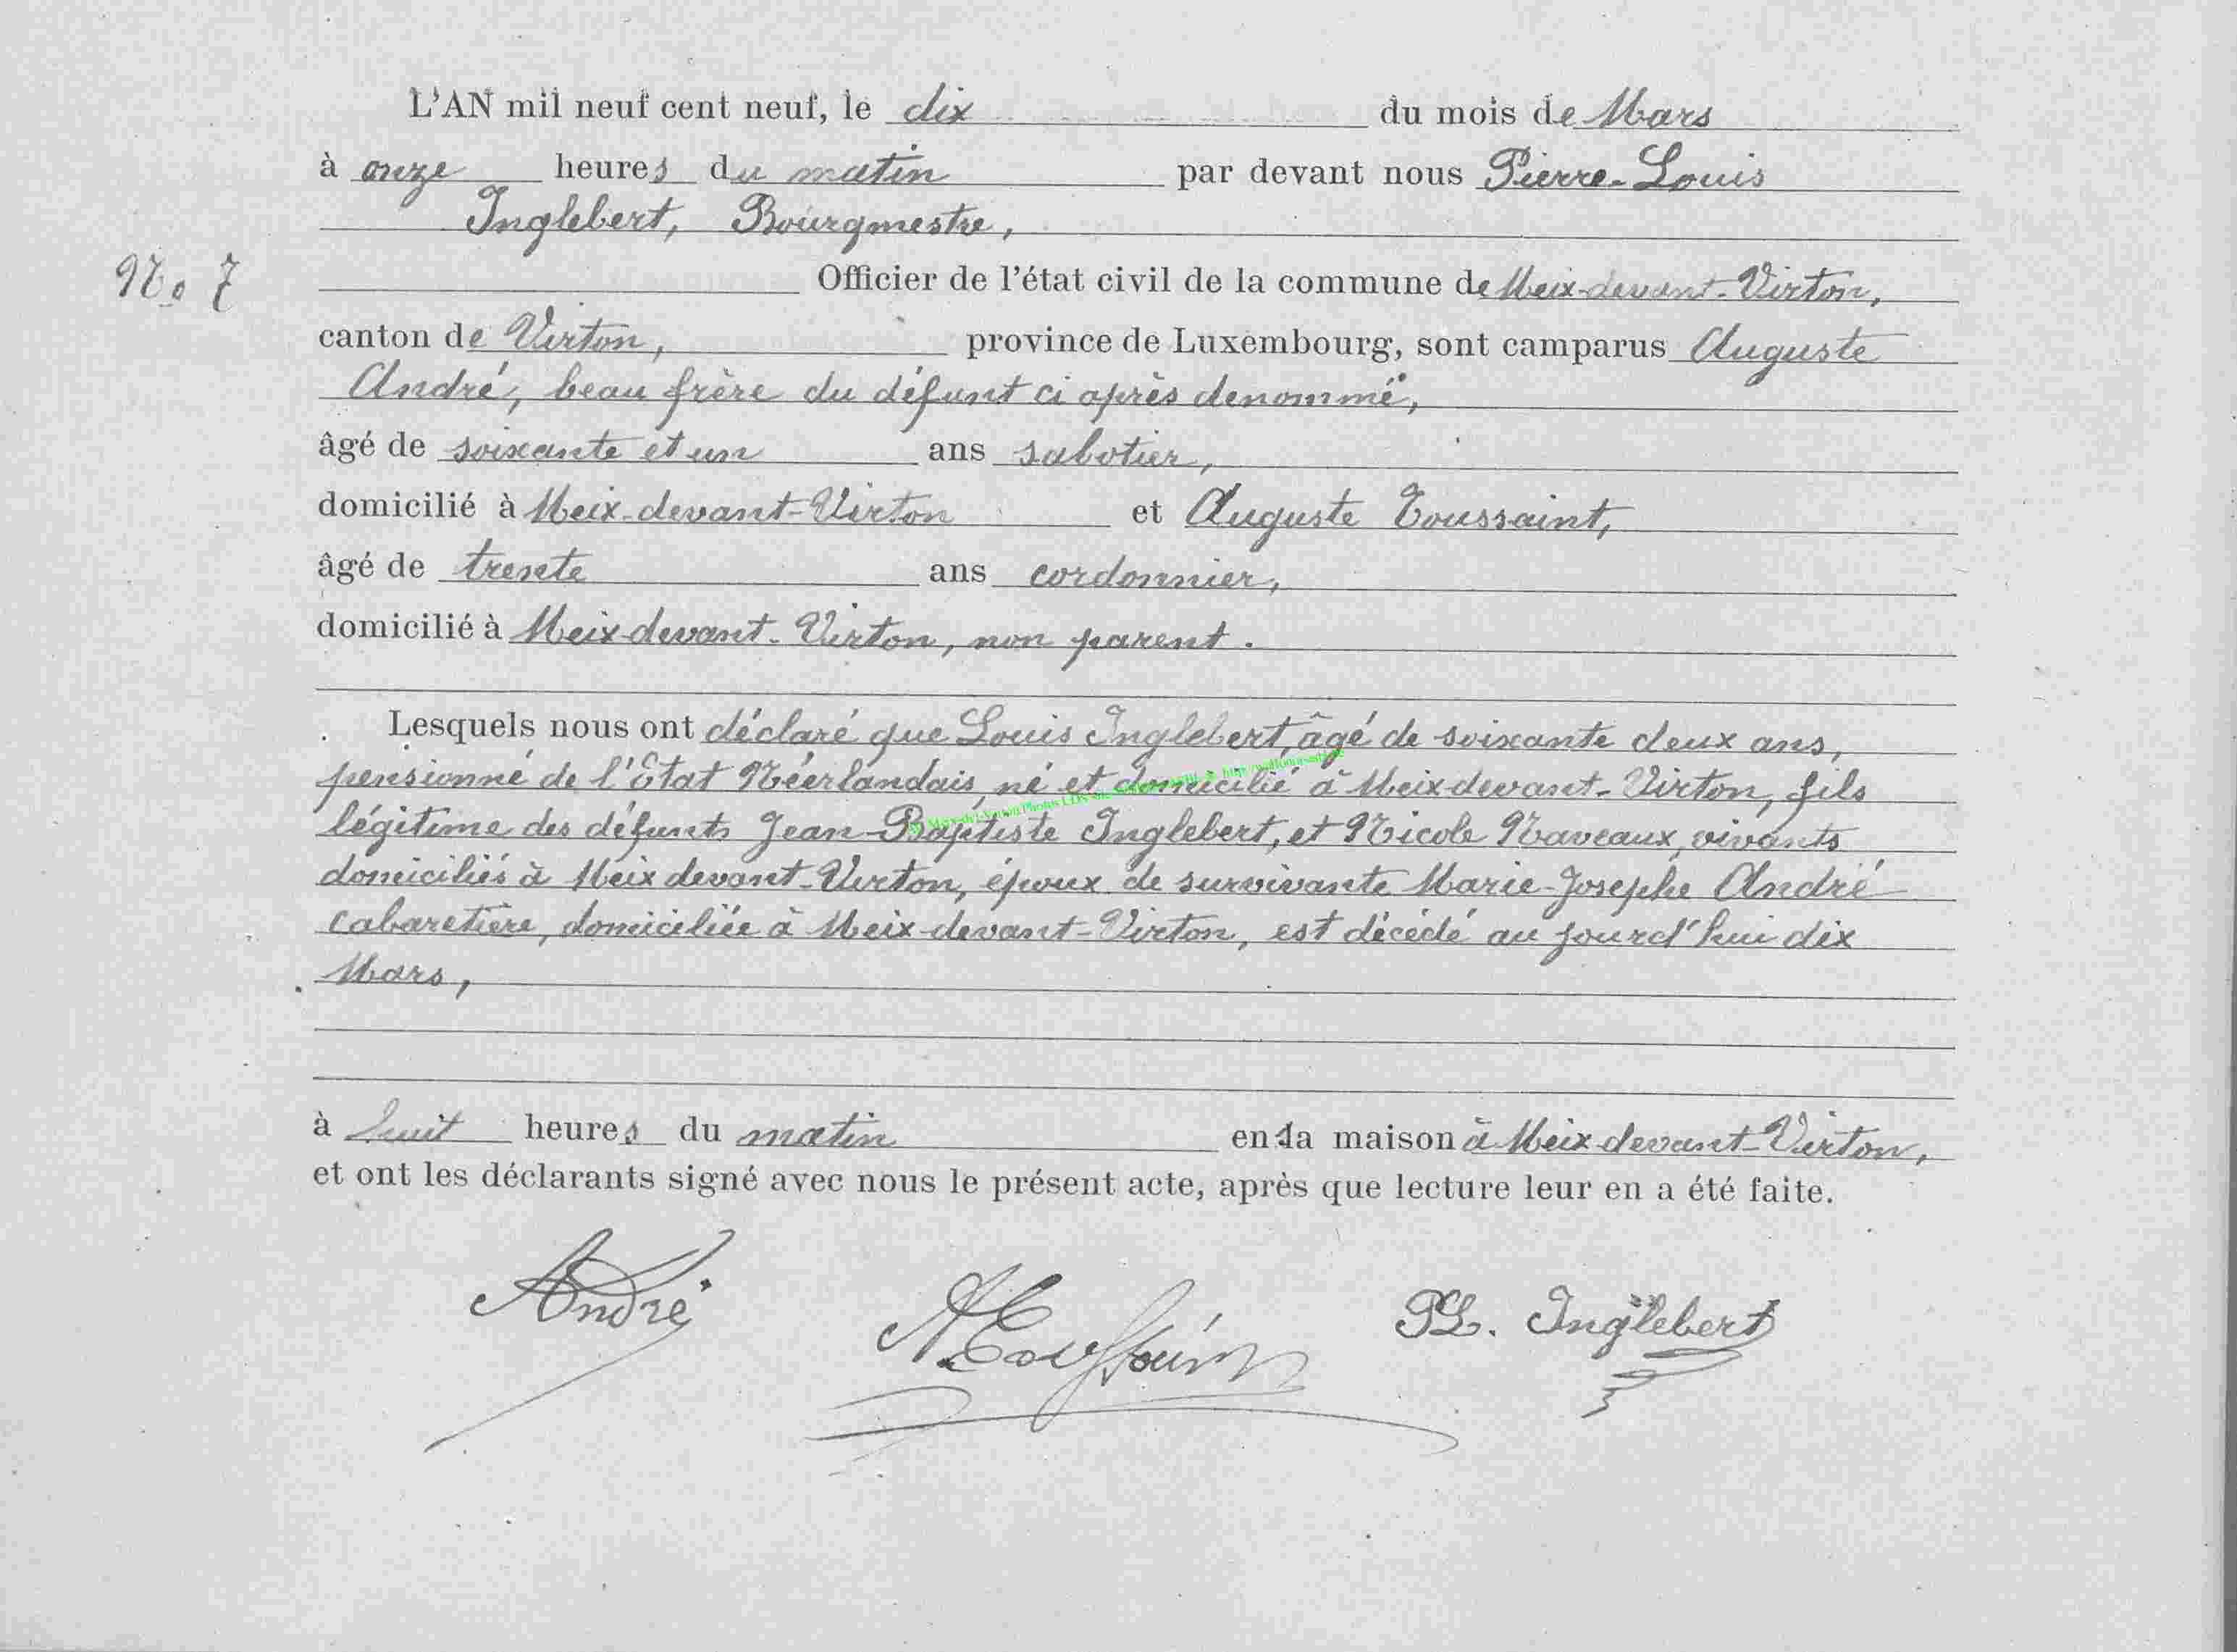 L'AN mil neuf cent neuf, le dix du mois de Mars
à onze heures du matin par devant nous Pierre-Louis
Inglebert, Bourgmestre,
No 7
Officier de l'état civil de la commune de Meix-devant-Virton,
canton de Virton, province de Luxembourg, sont camparus Auguste
André, beau frère du défunt ci après denommé,
âgé de soixante et un ans sabotier,
domicilié à Meix-devant-Virton et Auguste Toussaint,
âgé de trente ans cordonnier,
domicilié à Meix-devant-Virton, non parent.
Lesquels nous ont déclaré que Louis Inglebert, âgé de soixante deux ans,
pensionné de l'Etat Néerlandais, né et domicilié à Meix-devant-Virton, fils
légitime des défunts Jean-Baptiste Inglebert, et Nicole Naveaux, vivants
domiciliés à Meix devant-Virton, époux de survivante Marie-Josephe André
cabaretière, domiciliée à Meix-devant-Virton, est décédé au jourd'hui dix
Mars,
à huit heures du matin en la maison à Meix-devant-Virton,
et ont les déclarants signé avec nous le présent acte, après que lecture leur en a été faite.
André
A Toussaint
PL. Inglebert